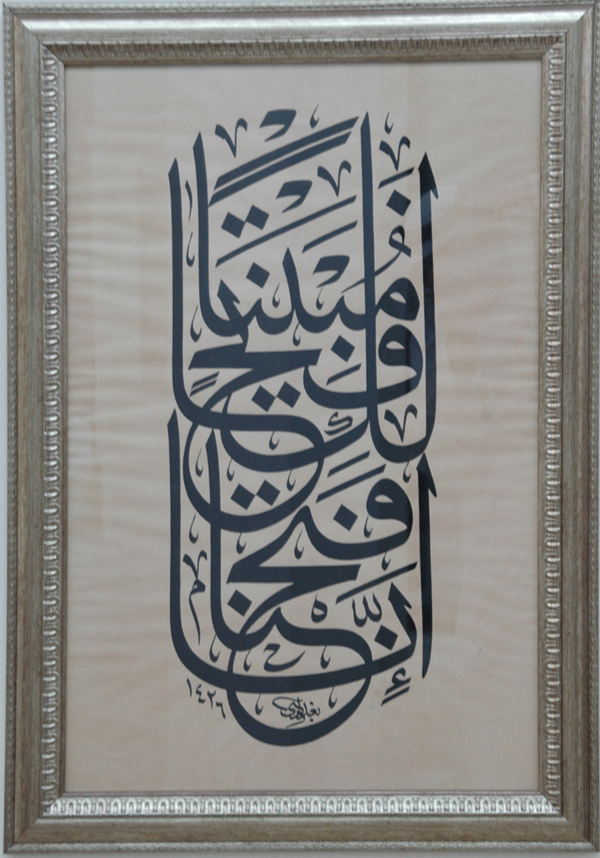 إنَّا فتحنا لك فتحًا مبينًا
١٤٢٦